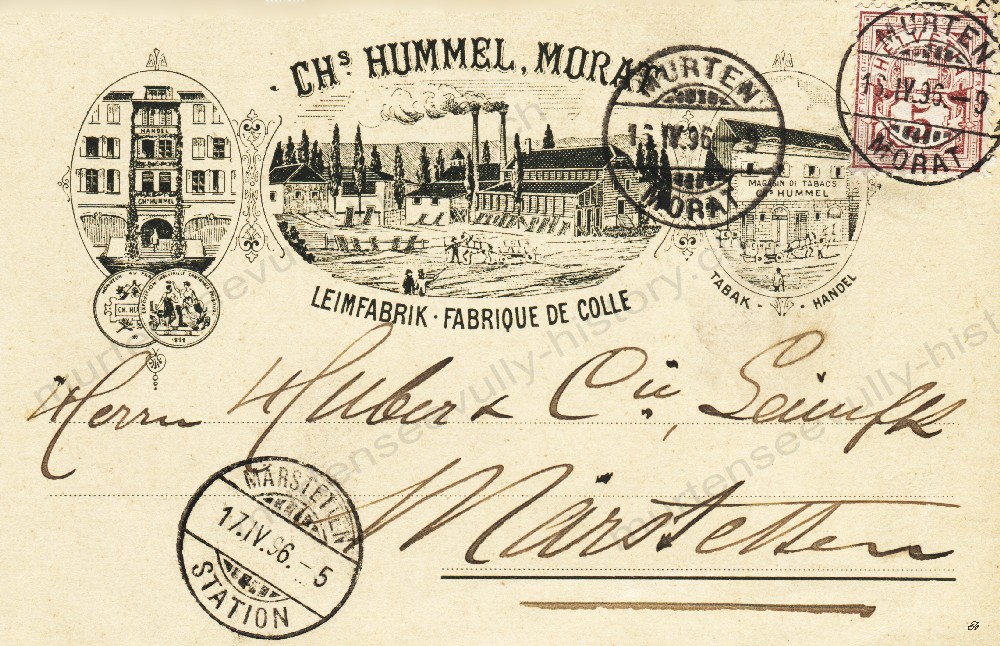 CHS HUMMEL, MORAT
HANDEL
CHS HUMMEL
MAGASIN DI TABACS
CHS HUMMEL
LEIMFABRIK · FABRIQUE DE COLLE
TABAK - HANDEL
CH. HU
MURTEN
16.IV.96 - 9
MORAT
MURTEN
16.IV.96 - 9
MORAT
HELVETIA
Herrn Huber & Cie,
Märstetten
MÄRSTETTEN
17.IV.96. - 5
STATION
murtenseevully-history.ch
murtenseevully-history.ch